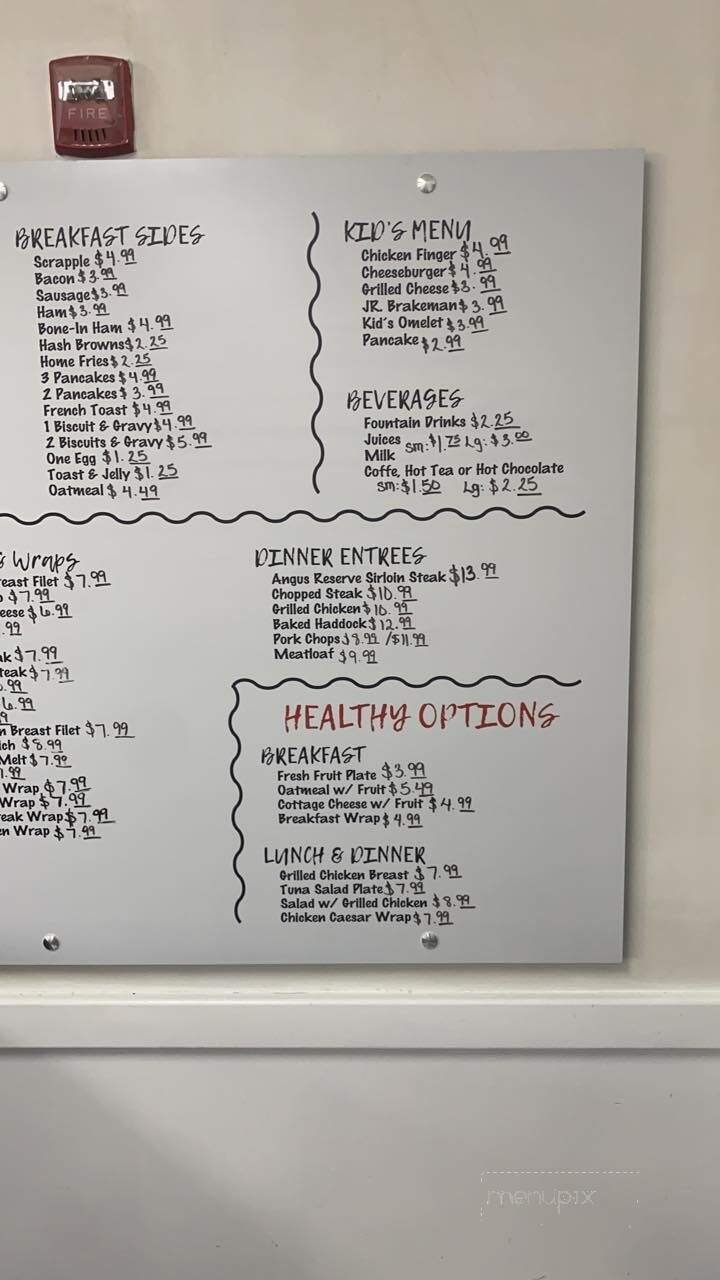 FIRE
BREAKFAST SIDES
Scrapple $4.99
Bacon $3.99
Sausage $3.99
Ham $3.99
Bone-In Ham $4.99
Hash Browns $2.25
Home Fries $2.25
3 Pancakes $4.99
2 Pancakes $3.99
French Toast $4.99
1 Biscuit & Gravy $4.99
2 Biscuits & Gravy $5.99
One Egg $1.25
Toast & Jelly $1.25
Oatmeal $4.49
KID'S MENU
Chicken Finger $4.99
Cheeseburger $4.99
Grilled Cheese $3.99
JR. Brakeman $3.99
Kid's Omelet $3.99
Pancake $2.99
BEVERAGES
Fountain Drinks $2.25
Juices sm: $1.75 Lg: $3.00
Milk
Coffe, Hot Tea or Hot Chocolate
sm: $1.50 Lg: $2.25
& Wraps
east Filet $7.99
$7.99
eese $6.99
.99
ak $7.99
teak $7.99
.99
6.99
n Breast Filet $7.99
ich $8.99
Melt $7.99
.99
Wrap $7.99
Wrap $7.99
eak Wrap $7.99
en Wrap $7.99
DINNER ENTREES
Angus Reserve Sirloin Steak $13.99
Chopped Steak $10.99
Grilled Chicken $10.99
Baked Haddock $12.99
Pork Chops $8.99 / $11.99
Meatloaf $9.99
HEALTHY OPTIONS
BREAKFAST
Fresh Fruit Plate $3.99
Oatmeal w/ Fruit $5.49
Cottage Cheese w/ Fruit $4.99
Breakfast Wrap $4.99
LUNCH & DINNER
Grilled Chicken Breast $7.99
Tuna Salad Plate $7.99
Salad w/ Grilled Chicken $8.99
Chicken Caesar Wrap $7.99
menupix